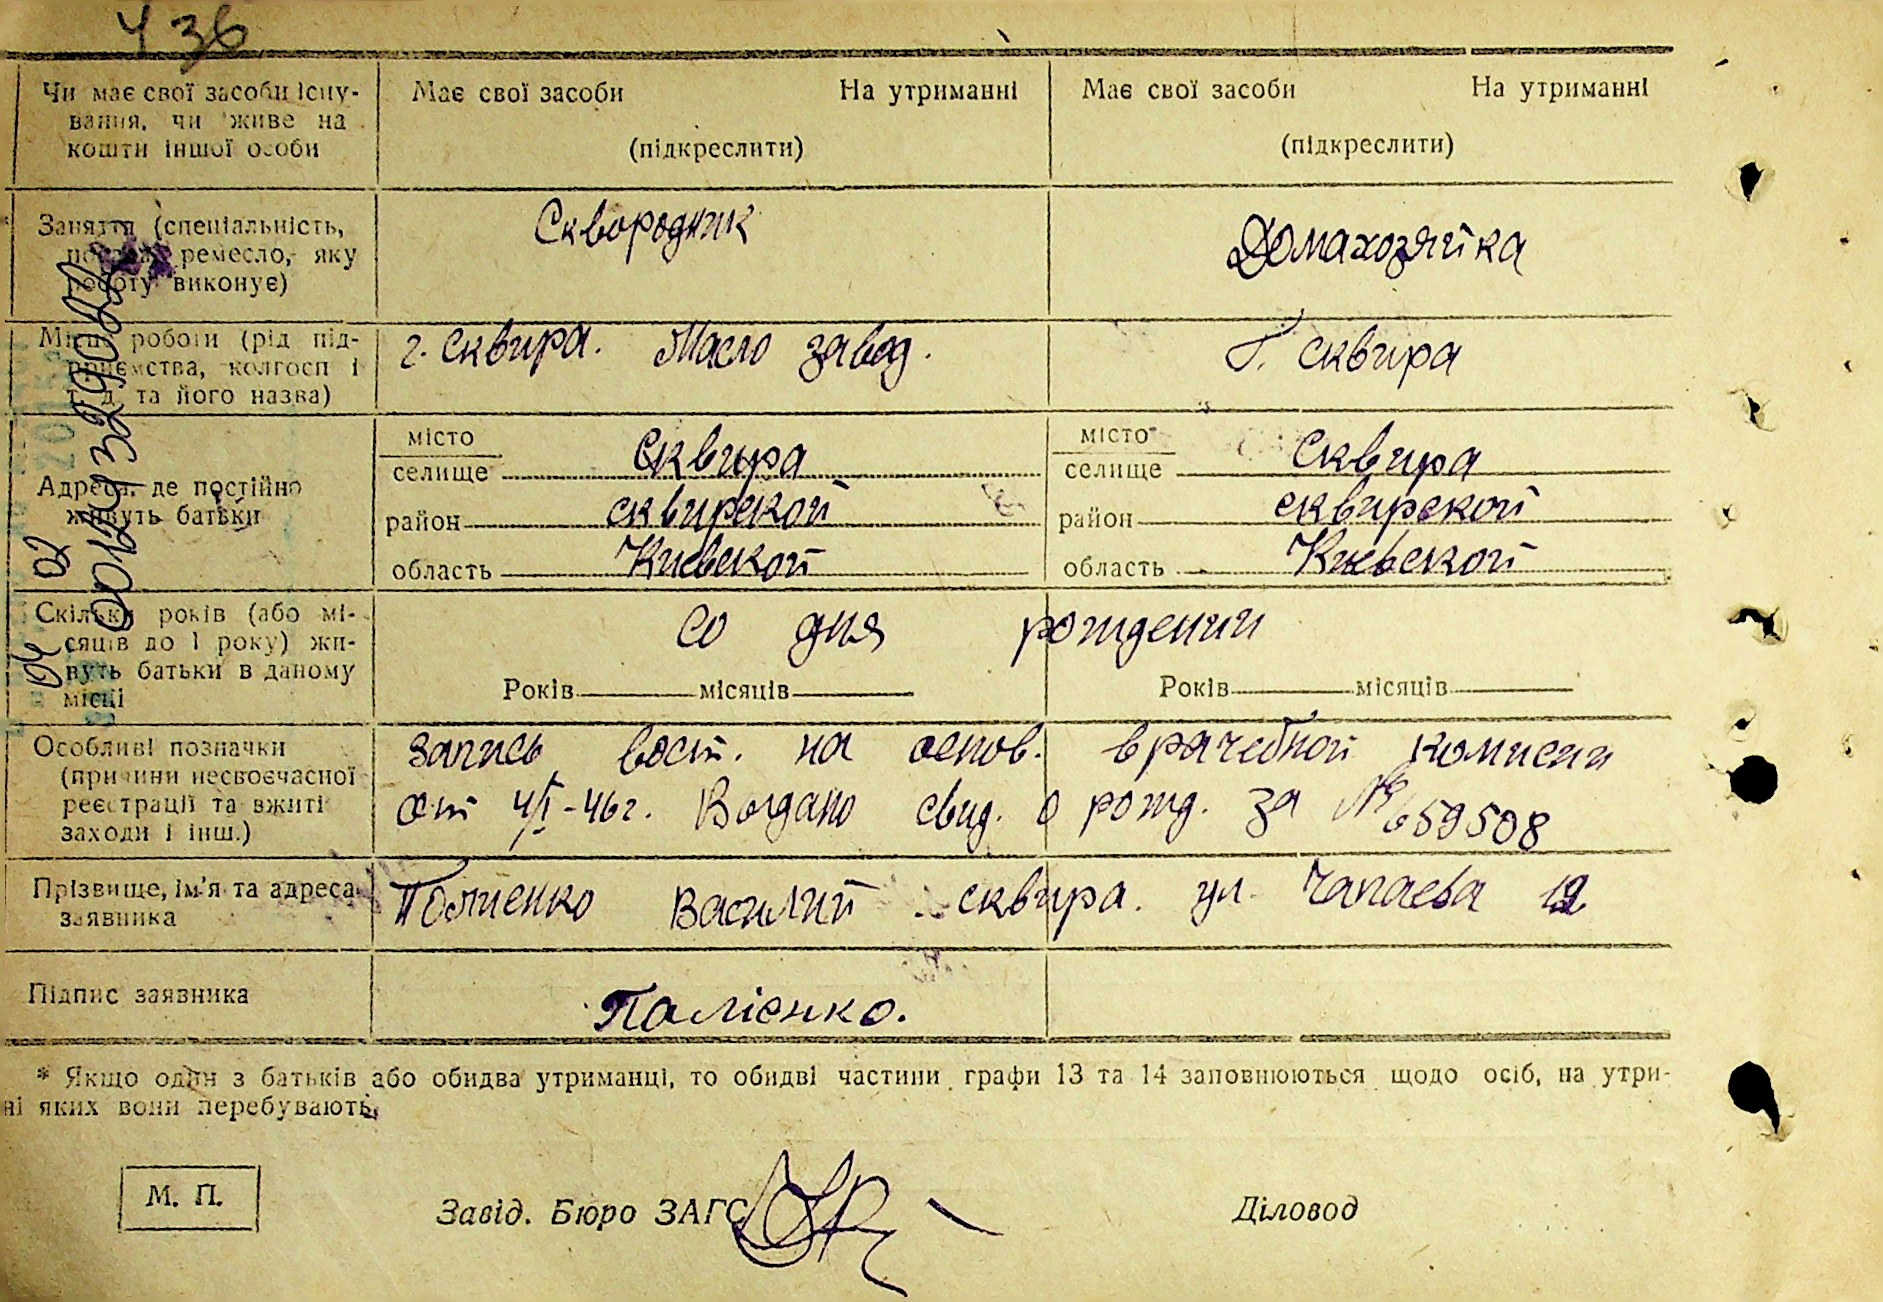 Ч 36
Чи має свої засоби існу-
вання, чи живе на
кошти іншої особи
Має свої засоби На утриманні
(підкреслити)
Має свої засоби На утриманні
(підкреслити)
Заняття (спеціальність,
посада, ремесло, яку
роботу виконує)
Сквородник
Домахозяйка
Місце роботи (рід під-
приємства, колгосп і
т. д. та його назва)
г. Сквира. Масло завод.
Г. Сквира
Адреса, де постійно
живуть батьки
місто
селище Сквира
район сквирской
область Киевской
місто
селище Сквира
район сквирской
область Киевской
Скільки років (або мі-
сяців до 1 року) жи-
вуть батьки в даному
місці
Со дня рождении
Років місяців
Років місяців
Особливі позначки
(причини несвоєчасної
реєстрації та вжиті
заходи і інш.)
Запись вост. на основ. врачебной комисии
от 4/I-46г. Видано свид. о рожд. за № 659508
Прізвище, ім'я та адреса
заявника
Полиенко Василий Сквира. ул. Чапаева 12
Підпис заявника
Полієнко.
* Якщо один з батьків або обидва утриманці, то обидві частини графи 13 та 14 заповнюються щодо осіб, на утри-
ні яких вони перебувають.
М. П.
Завід. Бюро ЗАГС
Діловод
04 02